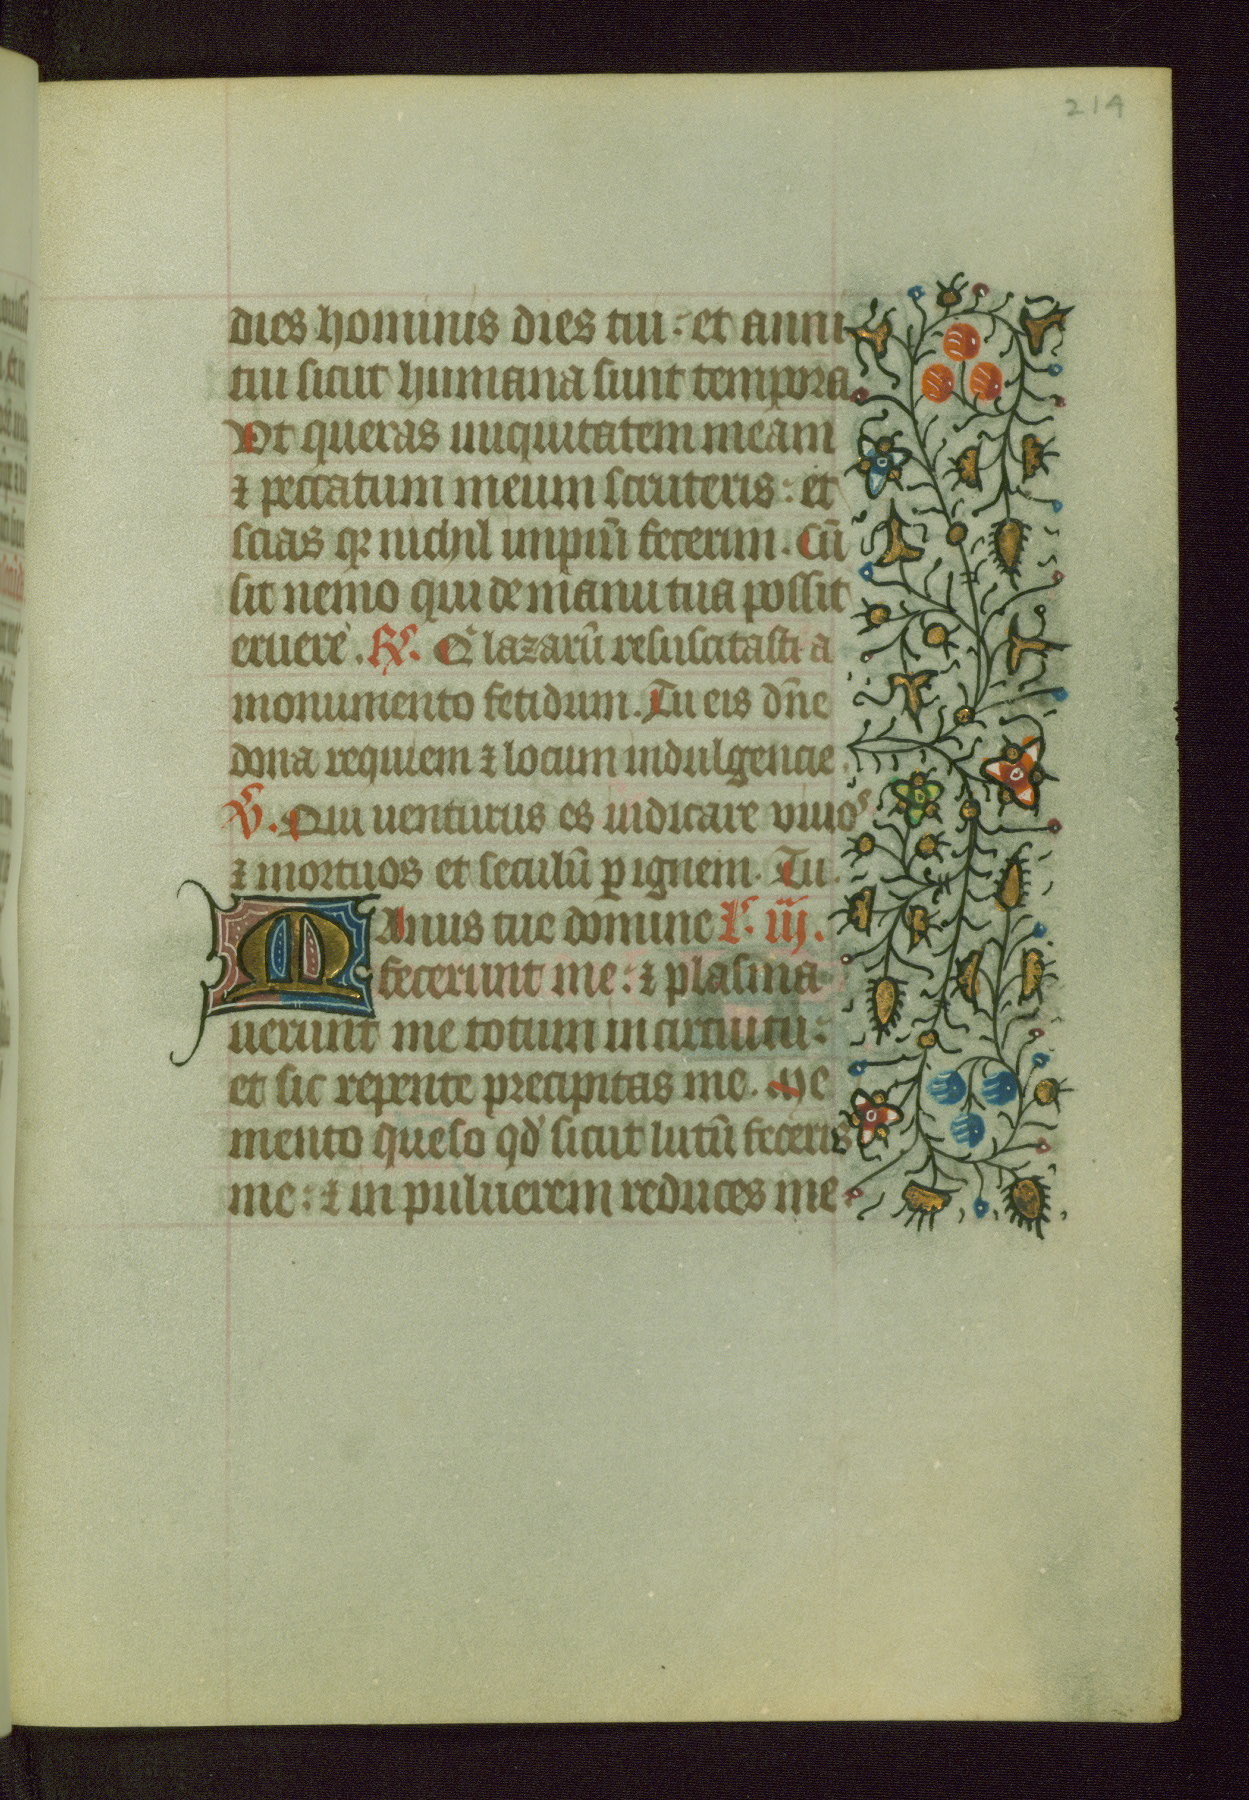 214
dies hominis dies tui: et anni
tui sicut humana sunt tempora.
Ut queras iniquitatem meam
⁊ peccatum meum scruteris: et
scias qꝛ nichil impiū fecerim. Cū
sit nemo qui de manu tua possit
eruere. R̸. Qͥ lazarū resuscitasti a
monumento fetidum. Tu eis dn̄e
dona requiem ⁊ locum indulgencie.
V̸. Qui uenturus es iudicare viuos
⁊ mortuos et seculū ꝑ ignem. Tu.
Manus tue domine l. iij.
fecerunt me: ⁊ plasma
uerunt me totum in circuitu:
et sic repente precipitas me. Me
mento queso qd̛ sicut lutū feceris
me: ⁊ in puluerem reduces me